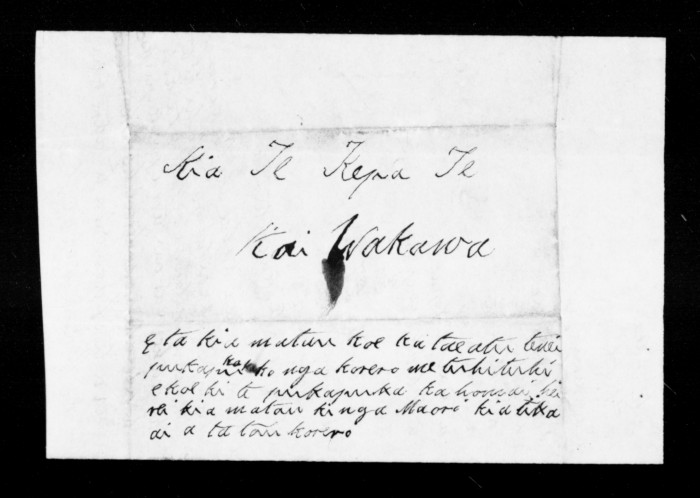 Kia Te Kepa Te
Kai Wakawa
E ta kia matau koe ka tae atu tenei
pukapuka ko nga korero me tuhituhi
e koe ki te pukapuka ka homai
kia matau ki nga Maori kia tika
ai a ta tou korero